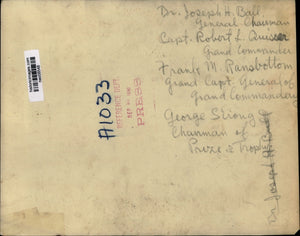 Dr. Joseph H. Ball
General Chairman
Capt. Robert L. Quisser
Grand Commander
Frank M. Ransbottom
Grand Capt. General of
Grand Commandery
George Strong
Chairman of
Prize & Trophy
Dr Joseph H. Ball
A1033
REFERENCE DEPT.
PRESS